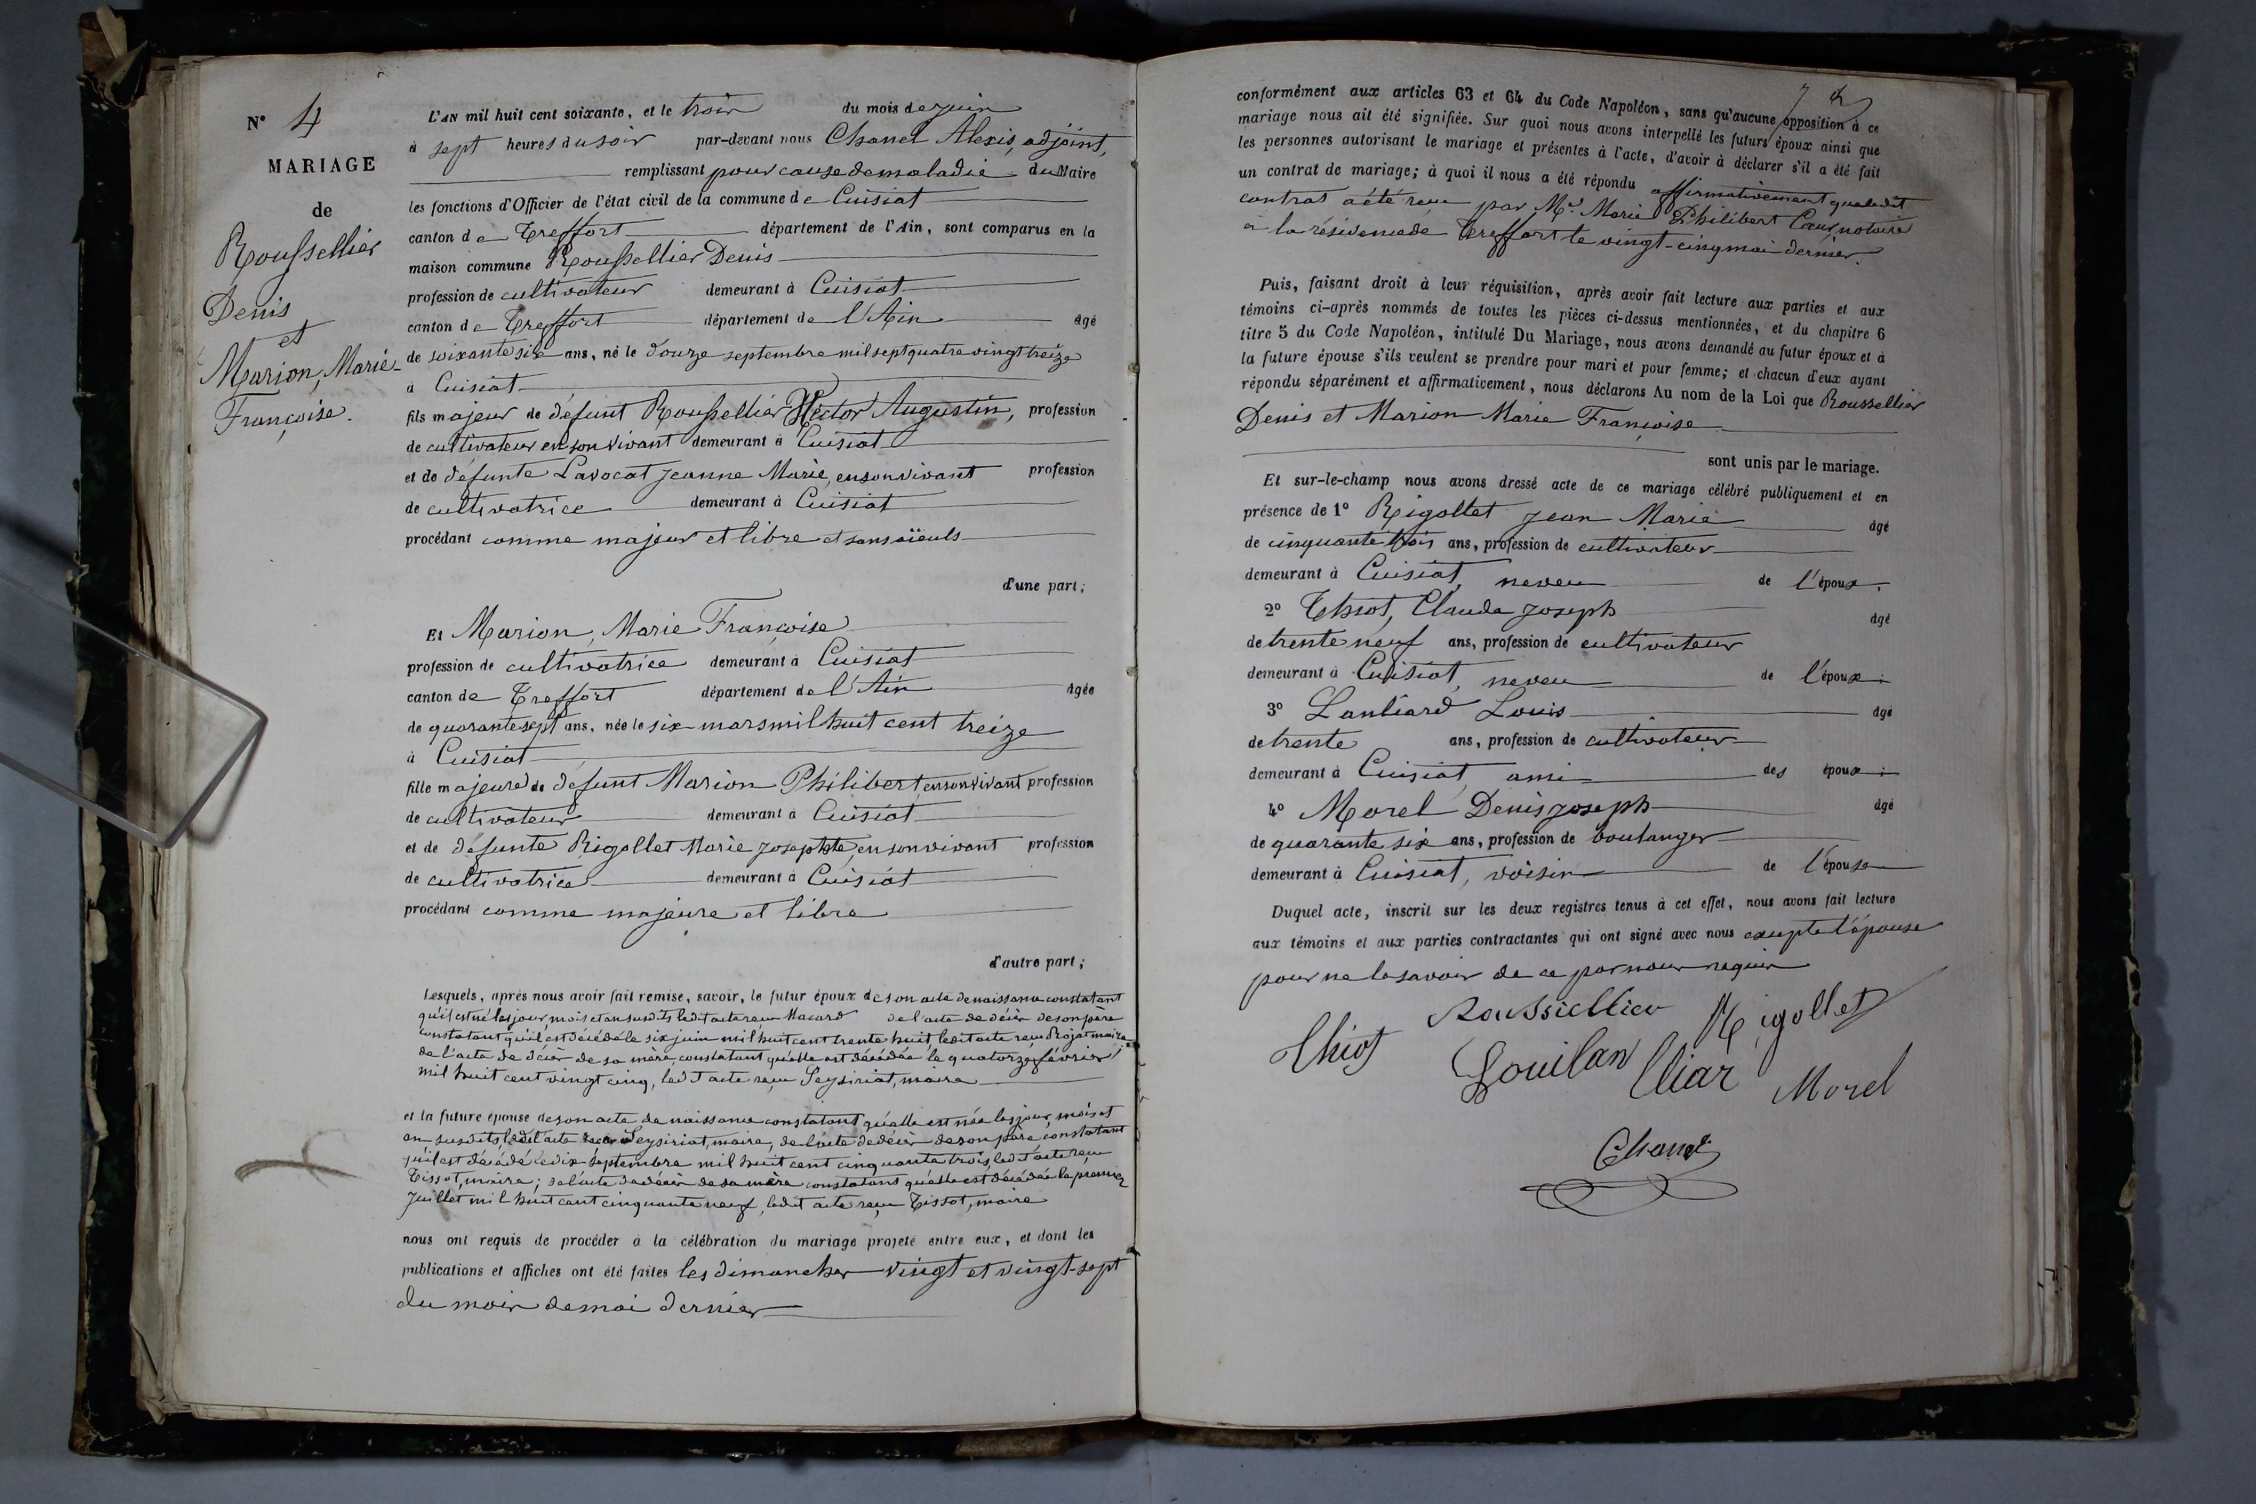 N° 4
MARIAGE
de
Roussellier
Denis
et
Marion, Marie-
Françoise.
L'AN mil huit cent soixante, et le trois du mois de juin
à sept heures du soir par-devant nous Chanel Alexis, adjoint,
remplissant pour cause de maladie du Maire
les fonctions d'Officier de l'état civil de la commune de Cuisiat
canton de Treffort département de l'Ain, sont comparus en la
maison commune Roussellier Denis
profession de cultivateur demeurant à Cuisiat
canton de Treffort département de l'Ain âgé
de soixante six ans, né le douze septembre mil sept quatre vingt treize
à Cuisiat
fils majeur de défunt Roussellier Hector Augustin, profession
de cultivateur en son vivant demeurant à Cuisiat
et de défunte Lavocat Jeanne Marie, en son vivant profession
de cultivatrice demeurant à Cuisiat
procédant comme majeur et libre et sans aïeuls
d'une part;
Et Marion, Marie Françoise
profession de cultivatrice demeurant à Cuisiat
canton de Treffort département de l'Ain âgée
de quarante sept ans, née le six mars mil huit cent treize
à Cuisiat
fille majeure de défunt Marion Philibert en son vivant profession
de cultivateur demeurant à Cuisiat
et de défunte Rigollet Marie Josephte, en son vivant profession
de cultivatrice demeurant à Cuisiat
procédant comme majeure et libre
d'autre part;
Lesquels, après nous avoir fait remise, savoir, le futur époux de son acte de naissance constatant
qu'il est né les jour, mois et an susdits ledit acte reçu Macard de l'acte de décès de son père
constatant qu'il est décédé le six juin mil huit cent trente huit, ledit acte reçu Rojat maire
de l'acte de décès de sa mère, constatant qu'elle est décédée le quatorze février
mil huit cent vingt cinq, ledit acte reçu Seysiriat, maire
et la future épouse de son acte de naissance constatant qu'elle est née les jour, mois et
an susdits, ledit acte reçu Seysiriat, maire, de l'acte de décès de son père, constatant
qu'il est décédé le dix septembre mil huit cent cinquante trois, ledit acte reçu
Tissot, maire; de l'acte de décès de sa mère constatant qu'elle est décédée le premier
Juillet mil huit cent cinquante neuf, ledit acte reçu Tissot, maire
nous ont requis de procéder à la célébration du mariage projeté entre eux, et dont les
publications et affiches ont été faites les dimanches vingt et vingt-sept
du mois de mai dernier
7
conformément aux articles 63 et 64 du Code Napoléon, sans qu'aucune opposition à ce
mariage nous ait été signifiée. Sur quoi nous avons interpellé les futurs époux ainsi que
les personnes autorisant le mariage et présentes à l'acte, d'avoir à déclarer s'il a été fait
un contrat de mariage; à quoi il nous a été répondu affirmativement que ledit
contrat a été reçu par Me Marie Philibert Cœur, notaire
à la résidence de Treffort le vingt-cinq mai dernier.
Puis, faisant droit à leur réquisition, après avoir fait lecture aux parties et aux
témoins ci-après nommés de toutes les pièces ci-dessus mentionnées, et du chapitre 6
titre 5 du Code Napoléon, intitulé Du Mariage, nous avons demandé au futur époux et à
la future épouse s'ils veulent se prendre pour mari et pour femme; et chacun d'eux ayant
répondu séparément et affirmativement, nous déclarons Au nom de la Loi que Roussellier
Denis et Marion Marie Françoise
sont unis par le mariage.
Et sur-le-champ nous avons dressé acte de ce mariage célébré publiquement et en
présence de 1° Rigollet Jean Marie âgé
de cinquante trois ans, profession de cultivateur
demeurant à Cuisiat, neveu de l'époux.
2° Thiot, Claude Joseph âgé
de trente neuf ans, profession de cultivateur
demeurant à Cuisiat, neveu de l'époux;
3° Lanliard Louis âgé
de trente ans, profession de cultivateur
demeurant à Cuisiat, ami des époux;
4° Morel Denis Joseph âgé
de quarante six ans, profession de boulanger
demeurant à Cuisiat, voisin de l'épouse
Duquel acte, inscrit sur les deux registres tenus à cet effet, nous avons fait lecture
aux témoins et aux parties contractantes qui ont signé avec nous excepté l'épouse
pour ne le savoir de ce par nous requise
Roussiellier Rigollet
Thiot Louilan Iliar Morel
Chanel